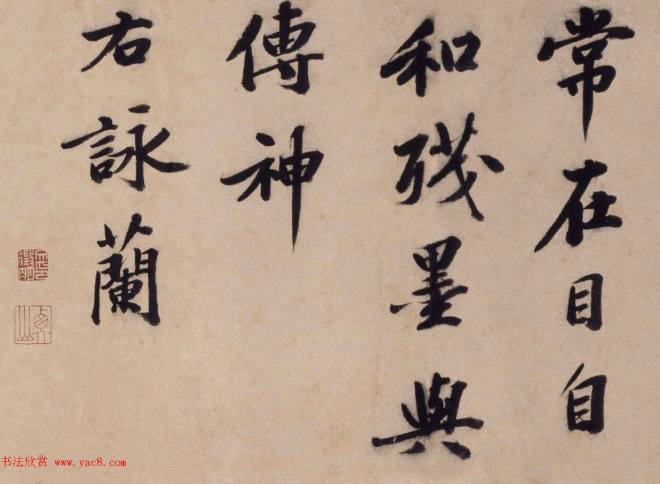 常在目自
和殘墨與
傳神
右詠蘭
书法欣赏 www.yac8.com